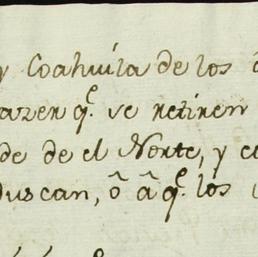 y Coahuila de los
azer q.e se retiren
de de el Norte, y co
duscan, ô â q.e los